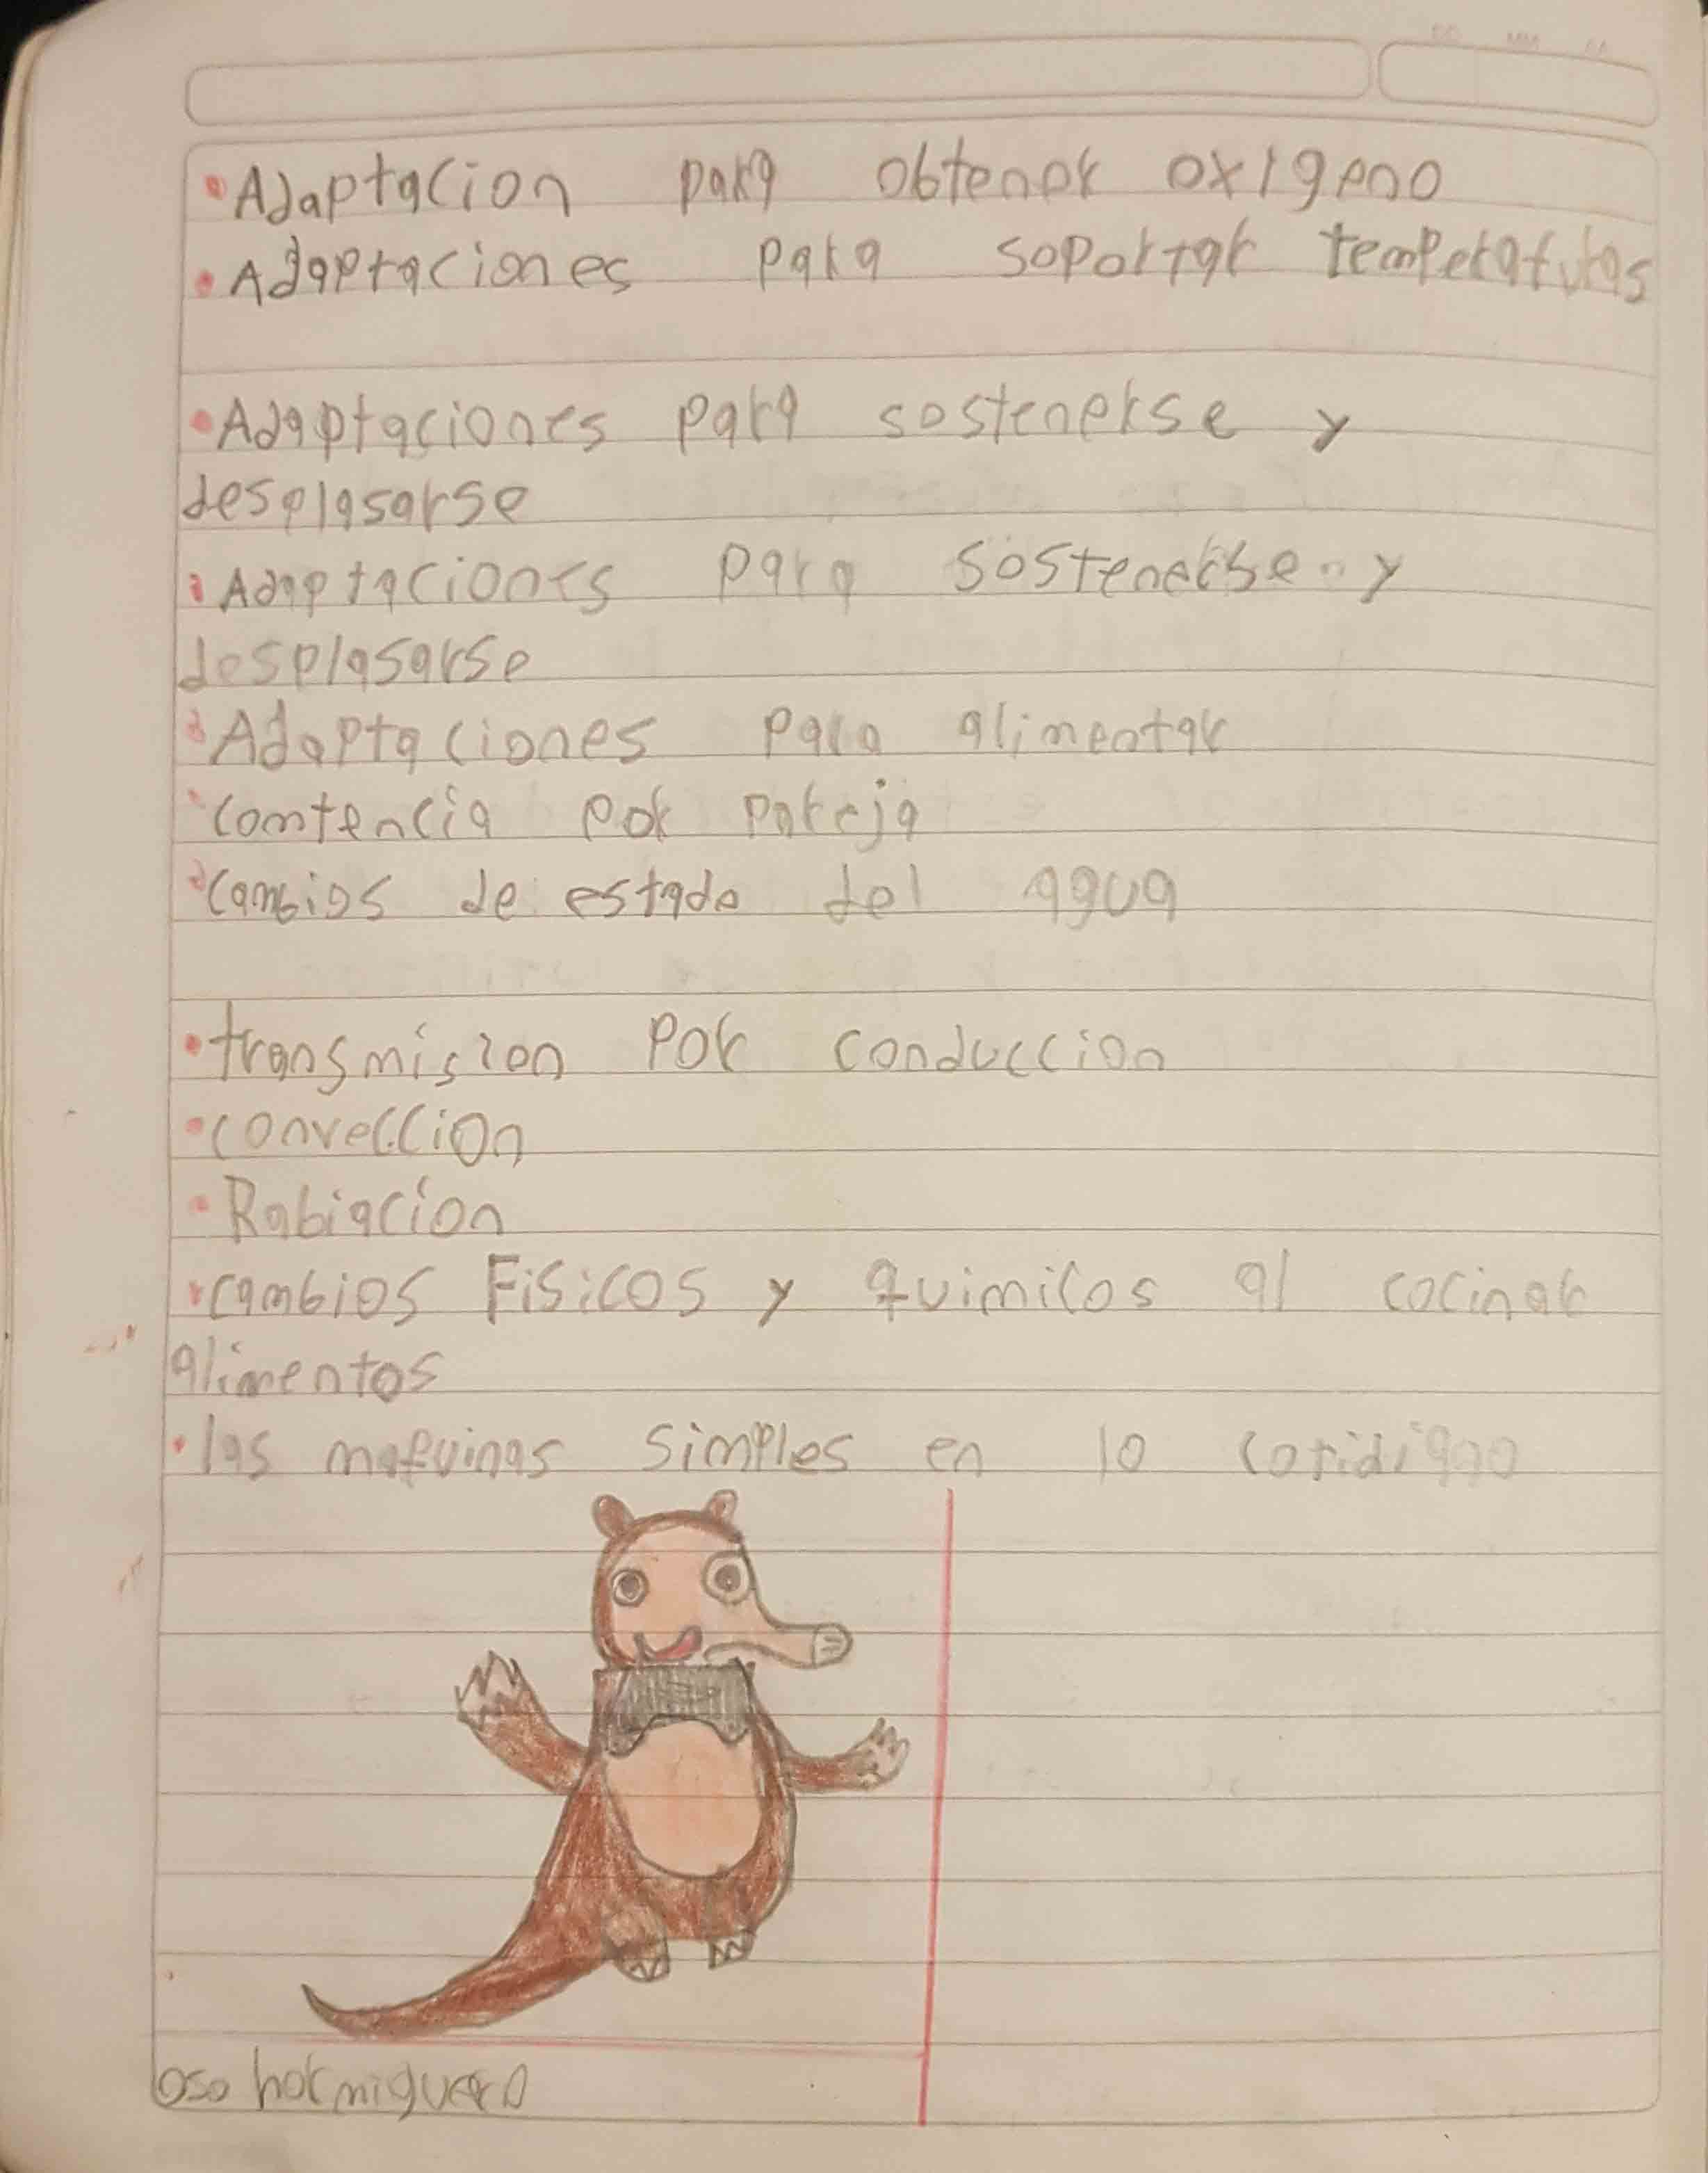 • Adaptacion para obtener oxigeno
• Adaptaciones para soportar temperaturas
• Adaptaciones para sostenerse y
desplasarse
• Adaptaciones para sostenerse y
desplasarse
• Adaptaciones para alimentar
• comtencia por pareja
• cambios de estado del agua
• transmision por conduccion
• conveccion
• Rabiacion
• cambios Fisicos y quimicos al cocinar
alimentos
• las maquinas simples en lo cotidiano
oso hormiguero